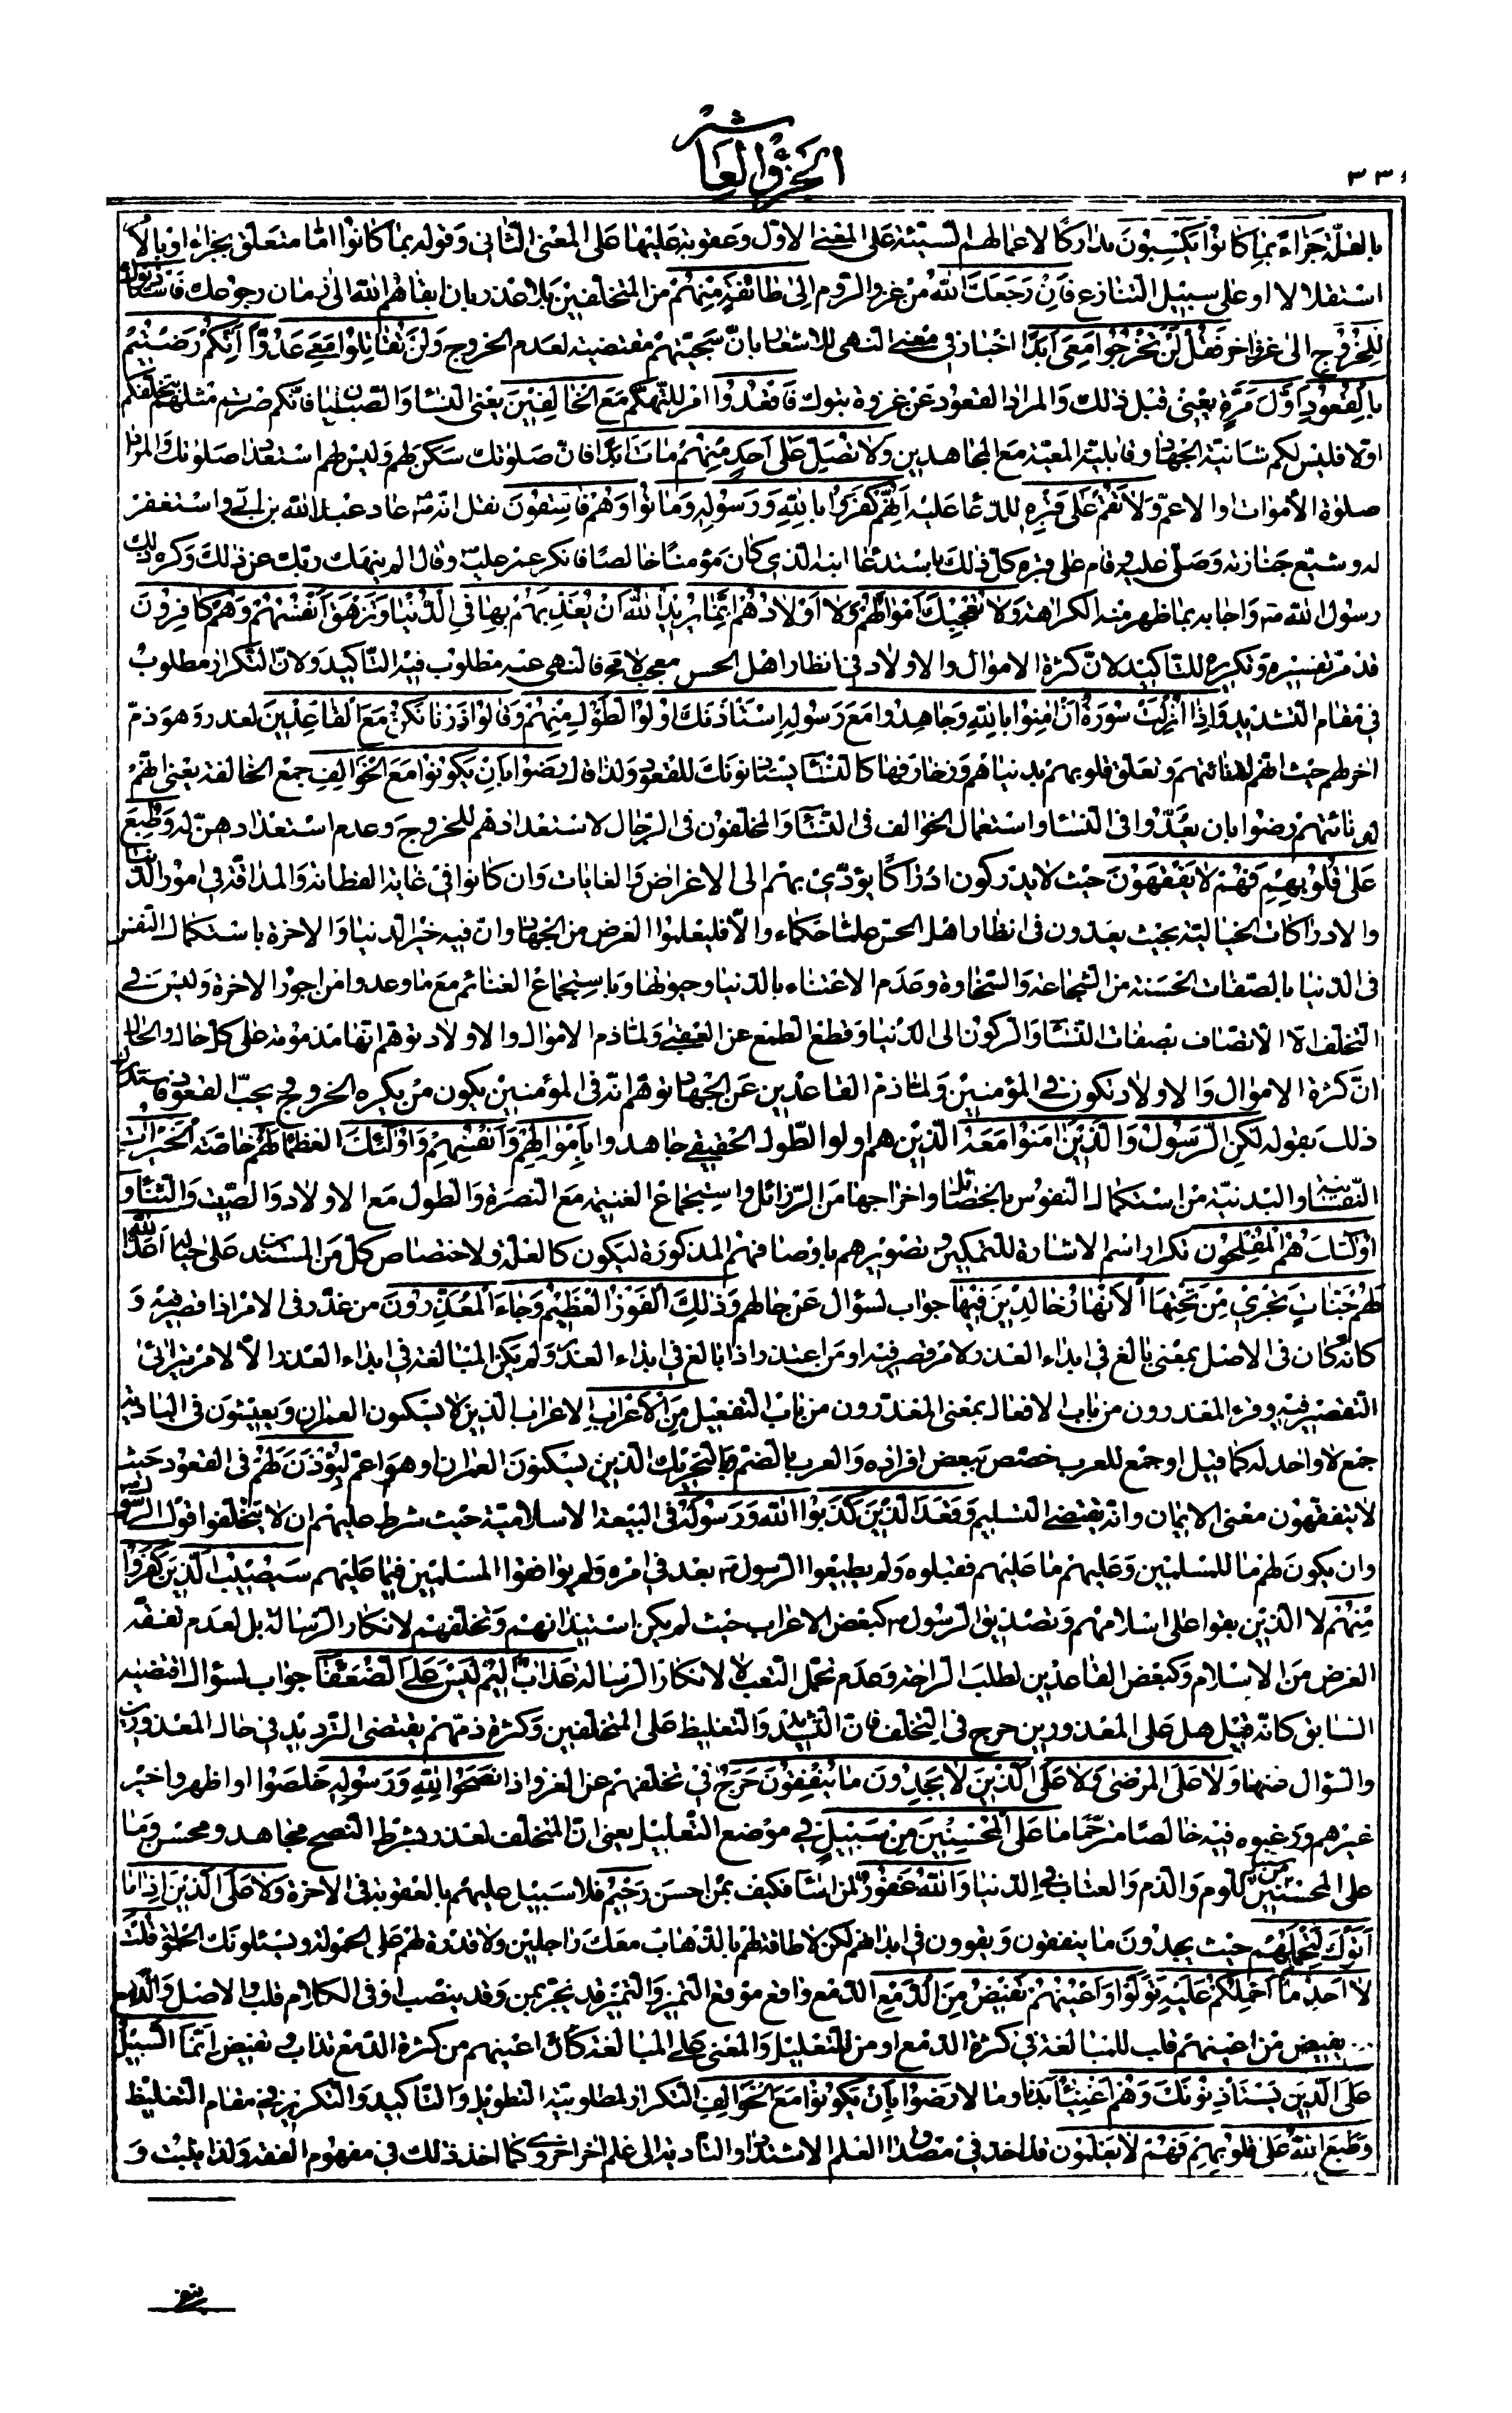 الجزء العاشر
٣٣٤
بالعلّة جَزاءً بِما كانُوا يَكْسِبُونَ تداركًا لاعمالهم السّيّئة على المعنى الاوّل وعقوبة عليها على المعنى الثّانى وقوله بما كانوا امّا متعلّق بجزاء او بالاوّل
استقلالا او على سبيل التنازع فَاِنْ رَجَعَكَ اللهُ من غزو الرّوم اِلى طائِفَةٍ مِنْهُمْ من المتخلّفين بلا عذر بان ابقاهم الله الى زمان رجوعك فَاسْتَأْذَنُوكَ
لِلْخُرُوجِ الى غزو اخر فَقُلْ لَنْ تَخْرُجُوا مَعِىَ اَبَدًا اخبار فى معنى النهى للاشعار بانّ سجيّتهم مقتضية لعدم الخروج وَلَنْ تُقاتِلُوا مَعِىَ عَدُوًّا اِنَّكُمْ رَضِيتُمْ
بِالْقُعُودِ اَوَّلَ مَرَّةٍ يعنى قبل ذلك والمراد القعود عن غزوة تبوك فَاقْعُدُوا امر للتّهكّم مَعَ الْخالِفينَ يعنى النّساء والصّبيان فانّكم صرتم مثلهم بتخلّفكم
اوّلا فليس لكم شانيّة الجهاد وقابليّة المعيّة مع المجاهدين وَلا تُصَلِّ عَلى اَحَدٍ مِنْهُمْ ماتَ اَبَدًا فانّ صلوتك سكن لهم وليس لهم استعداد صلوتك والمراد
صلوة الأموات او الاعمّ وَلا تَقُمْ عَلى قَبْرِهِ للدّعاء عليه اِنَّهُمْ كَفَرُوا بِاللهِ وَرَسُولِهِ وَماتُوا وَهُمْ فاسِقُونَ نقل انّه ص عاد عبد الله بن ابىّ واستغفر
له وشيّع جنازته وصلّى عليه وقام على قبره كلّ ذلك باستدعاء ابنه الذى كان مؤمنًا خالصًا فانكر عمر عليه وقال الم ينهك ربّك عن ذلك وكره ذلك
رسول الله ص واجابه بما ظهر منه الكراهة وَلا تُعْجِبْكَ اَمْوالُهُمْ وَلا اَوْلادُهُمْ اِنَّما يُرِيدُ اللهُ اَنْ يُعَذِّبَهُمْ بِها فِى الدُّنْيا وَتَزْهَقَ اَنْفُسُهُمْ وَهُمْ كافِرُونَ
قد مرّ تفسيره وتكريره للتّأكيد لانّ كثرة الاموال والاولاد فى انظار اهل الحسّ معجبة لا محة فالنهى عنه مطلوب فيه التّأكيد ولانّ التّكرار مطلوب
فى مقام التّشديد وَاِذا اُنْزِلَتْ سُورَةٌ اَنْ امِنُوا بِاللهِ وَجاهِدُوا مَعَ رَسُولِهِ اسْتَأْذَنَكَ اُولُوا الطَّوْلِ مِنْهُمْ وَقالُوا ذَرْنا نَكُنْ مَعَ الْقاعِدينَ لعذر وهو ذمّ
اخر لهم حيث انّهم لدنائتهم وتعلّق قلوبهم بدنياهم وزخارفها كالنّساء يستأذنونك للقعود ولذا قال رَضُوا بِاَنْ يَكُونُوا مَعَ الْخَوالِفِ جمع الخالفة يعنى انّهم
لدنائتهم رضوا بان يعدّوا فى النّساء واستعمال الخوالف فى النّساء والمخلّفون فى الرّجال لاستعدادهم للخروج وعدم استعدادهنّ له وَطُبِعَ
عَلى قُلُوبِهِمْ فَهُمْ لا يَفْقَهُونَ حيث لا يدركون ادراكًا يؤدّى بهم الى الاغراض والغايات وان كانوا فى غاية الفطانة والمداقّة فى امور الدّنيا
والادراكات الخياليّة بحيث يعدّون فى انظار اهل الحسّ علماء حكماء والّا فليعلموا الغرض من الجهاد وانّ فيه خير الدّنيا والاخرة باستكمال النّفس
فى الدّنيا بالصّفات الحسنة من الشّجاعة والسّخاوة وعدم الاعتناء بالدّنيا وحيوتها وباستجماع الغنائم مع ما وعدوا من اجور الاخرة وليس فى
التخلّف الّا الاتّصاف بصفات النّساء والركون الى الدّنيا وقطع الطّمع عن العقبى ولمّا ذمّ الاموال والاولاد توهّم انّها مذمومة على كلّ حال والحال
انّ كثرة الاموال والاولاد تكون فى المؤمنين ولمّا ذمّ القاعدين عن الجهاد توهّم انّه فى المؤمنين يكون من يكره الخروج ويحبّ القعود فاستدرك
ذلك بقوله لكِنِ الرَّسُولُ وَالَّذينَ امَنُوا مَعَهُ الّذين هم اولوا الطّول الحقيقى جاهَدُوا بِاَمْوالِهِمْ وَاَنْفُسِهِمْ وَاُولئِكَ العظماء لَهُمُ خاصّة الْخَيْراتُ
النّفسيّة والبدنيّة من استكمال النّفوس بالخصائل واخراجها من الرّذائل واستجماع الغنيمة مع النصرة والطول مع الاولاد والصّيت والثّناء وَ
اُولئِكَ هُمُ الْمُفْلِحُونَ تكرار اسم الاشارة للتّمكين وتصويرهم باوصافهم المذكورة ليكون كالعلّة ولاختصاص كلّ من المسندين على حياله اَعَدَّ اللهُ
لَهُمْ جَنّاتٍ تَجْرِى مِنْ تَحْتِهَا الْاَنْهارُ خالِدينَ فيها جواب لسؤال عن حالهم وَذلِكَ الْفَوْزُ الْعَظيمُ وَجاءَ الْمُعَذِّرُونَ من عذّر فى الامر اذا قصّر فيه و
كانّه كان فى الاصل بمعنى بالغ فى ابداء العذر لامر قصّر فيه او من اعتذر اذا بالغ فى ابداء العذر ولم يكن المبالغة فى ابداء العذر الّا لامر يترائى
التقصير فيه وقرء المعذرون من باب الافعال بمعنى المعذّرون من باب التفعيل مِنَ الْاَعْرابِ الاعراب الذين لا يسكنون العمران ويعيشون فى البادية
جمع لا واحد له كما قيل او جمع للعرب خصّص ببعض افراده والعرب بالضمّ وبالتّحريك الذين يسكنون العمران او هو اعمّ لِيُؤْذَنَ لَهُمْ فى القعود حيث
لا يتفقّهون معنى الايمان وانّه يقتضى التسليم وَقَعَدَ الَّذينَ كَذَبُوا اللهَ وَرَسُولَهُ فى البيعة الاسلاميّة حيث شرط عليهم ان لا يتخلّفوا قول الرّسول
وان يكون لهم ما للمسلمين وعليهم ما عليهم فقبلوه ولم يطيعوا الرّسول ص بعد فى امره ولم يوافقوا المسلمين فيما عليهم سَيُصيبُ الَّذينَ كَفَرُوا
مِنْهُمْ لا الّذين بقوا على اسلامهم وتصديق الرّسول ص كبعض الاعراب حيث لم يكن استيذانهم وتخلّفهم لانكار الرّسالة بل لعدم تفقّه
الغرض من الاسلام وكبعض القاعدين لطلب الراحة وعدم تحمّل التعب لا لانكار الرّسالة عَذابٌ اَليمٌ لَيْسَ عَلَى الضُّعَفاءِ جواب لسؤال اقتضيه
السّابق كانّه قيل هل على المعذورين حرج فى التخلّف فانّ التّشديد والتّغليظ على المتخلّفين وكثرة ذمّهم يقتضى التّرديد فى حال المعذورين
والسّؤال عنها وَلا عَلَى الْمَرْضى وَلا عَلَى الَّذينَ لا يَجِدُونَ ما يُنْفِقُونَ حَرَجٌ فى تخلّفهم عن الغزو اِذا نَصَحُوا لِلّهِ وَرَسُولِهِ خلصوا او اظهروا خير
غيرهم ورغبوه فيه خالصًا مترحّمًا ما عَلَى الْمُحْسِنينَ مِنْ سَبيلٍ فى موضع التّعليل يعنى انّ المتخلّف لعذر بشرط النّصح مجاهد ومحسن وما
على المحسنين من سبيل للّوم والذم والعتاب فى الدّنيا وَاللهُ غَفُورٌ لمن اساء فكيف بمن احسن رَحيمٌ فلا سبيل عليهم بالعقوبة فى الاخرة وَلا عَلَى الَّذينَ اِذا ما
اَتَوْكَ لِتَحْمِلَهُمْ حيث يجدون ما ينفقون ويقوون فى ابدانهم لكن لا طاقة لهم بالذّهاب معك راجلين ولا قدرة لهم على الحمولة ويسئلونك الحمولة قُلْتَ
لا اَجِدُ ما اَحْمِلُكُمْ عَلَيْهِ تَوَلَّوْا وَاَعْيُنُهُمْ تَفيضُ مِنَ الدَّمْعِ الدّمع واقع موقع التّميز والتّميز قد يجرّ بمن وقد ينصب او فى الكلام قلب والاصل والدّمع
يفيض من اعينهم قلب للمبالغة فى كثرة الدّمع او من للتّعليل والمعنى على المبالغة كانّ اعينهم من كثرة الدّمع تذاب وتفيض اِنَّمَا السَّبيلُ
عَلَى الَّذينَ يَسْتَأْذِنُونَكَ وَهُمْ اَغْنِياءُ ابدانا ومالا رَضُوا بِاَنْ يَكُونُوا مَعَ الْخَوالِفِ التكرار لمطلوبيّة التّطويل والتّاكيد والتّكرير فى مقام التّغليظ
وَطَبَعَ اللهُ عَلى قُلُوبِهِمْ فَهُمْ لا يَعْلَمُونَ قد اخذ فى مصداق العلم الاشتداد والتّأدية الى علم اخر اخروى كما اخذ ذلك فى مفهوم الفقه ولذا يثبت و